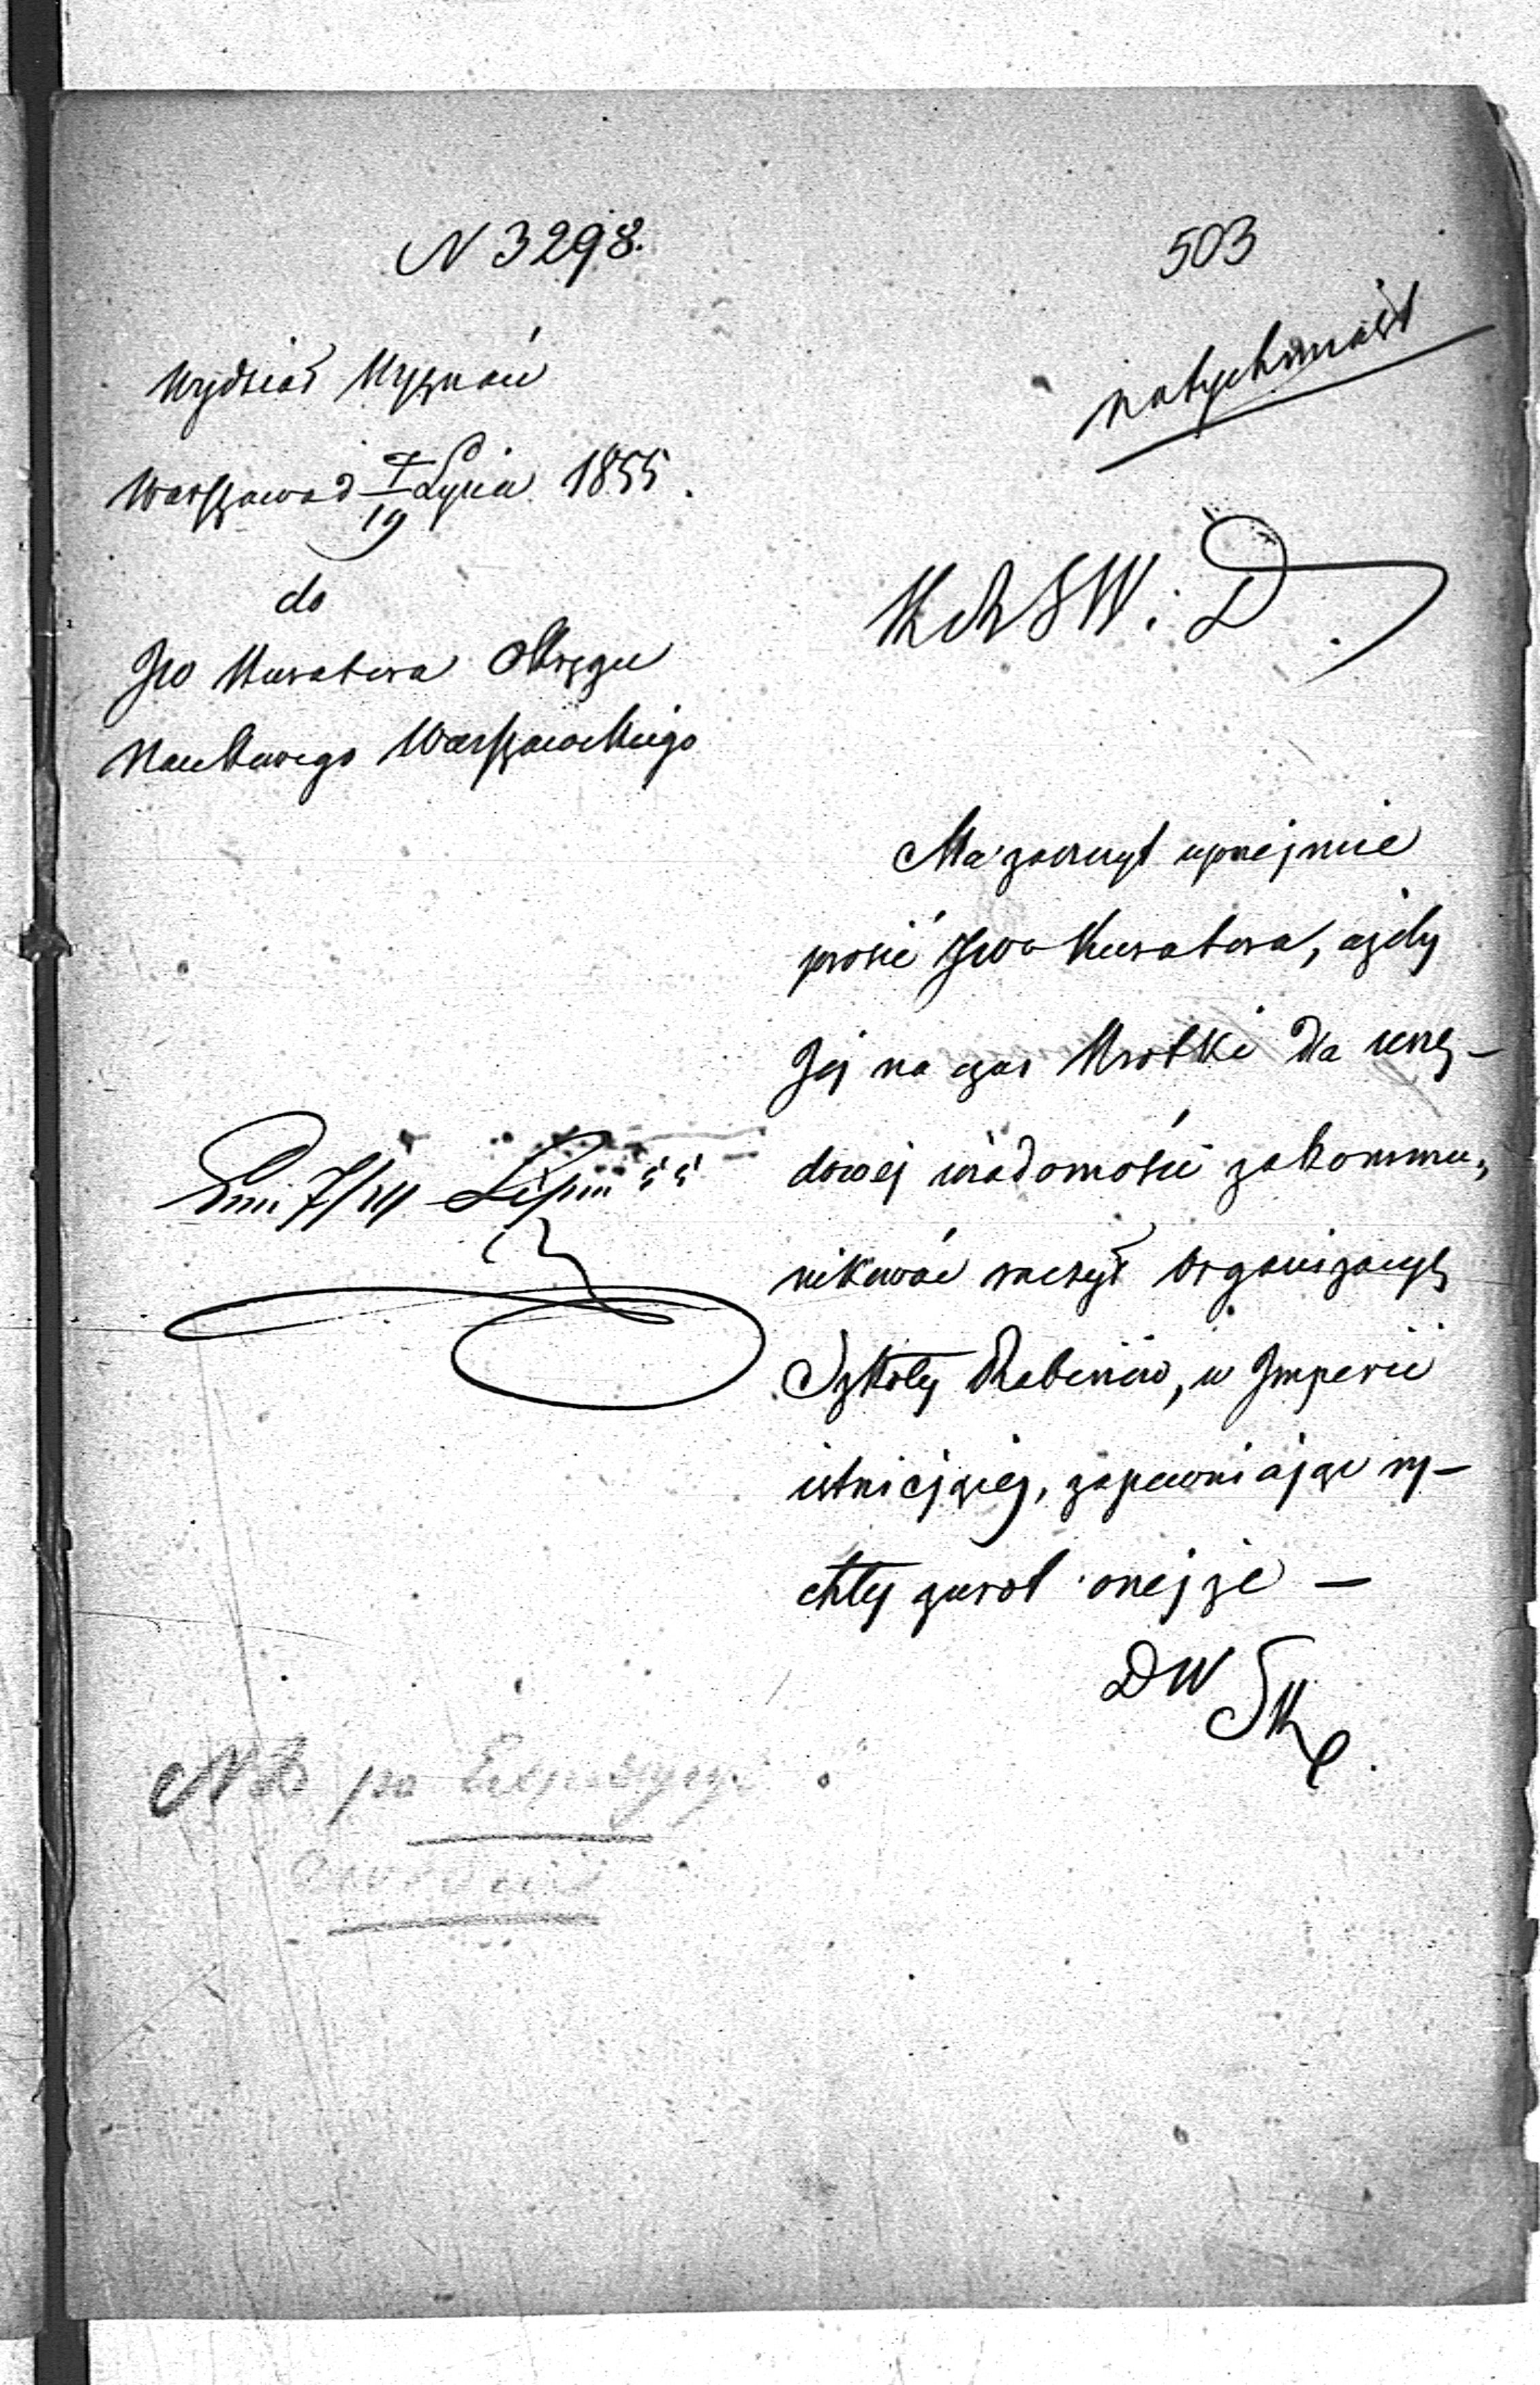 N 3298.
503
natychmiast
Wydział Wyznań
Warszawa d 7/19 Lipca 1855.
do
JW Kuratora Okręgu
Naukowego Warszawskiego
K R S W. i D.
Ma zaszczyt uprzejmie
prosić JWo Kuratora, ażeby
Jej na czas krótki dla urzę-
dowej wiadomości zakommu-
nikować raczył organizacyę
Szkoły Rabinów, w Imperii
istniejącej, zapewniając ry-
chły zwrot onejże —
D W
Dnia 7/19 Lipca 55
NB po Expedycyi